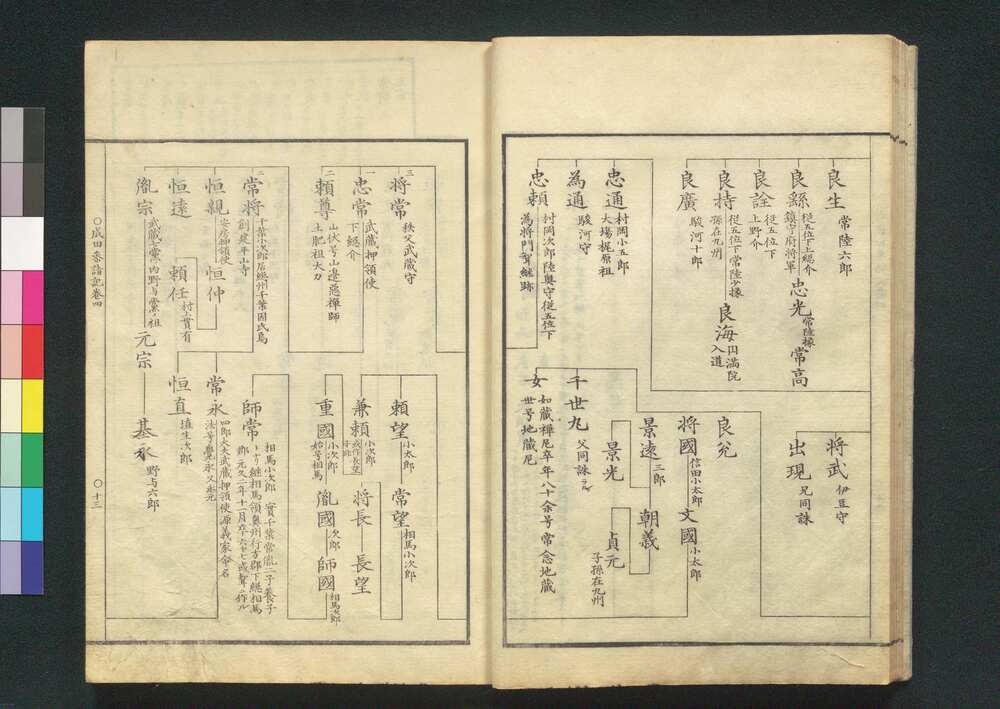 良生
常陸六郎
良繇
従五位下上総介
鎮守府将軍
忠光
常陸掾
常高
良詮
従五位下
上野介
良持
従五位下常陸少掾
孫在九州
良海
円満院
入道
良廣
駿河十郎
忠通
村岡小五郎
大場梶原祖
為通
駿河守
忠頼
村岡次郎陸奥守従五位下
為将門聟継跡
将武
伊豆守
出現
兄同誅
良兊
将國
信田小太郎
文國
小太郎
景遠
三郎
朝義
景光
貞元
子孫在九州
千世丸
父同誅
女
如蔵禅尼卒年八十余号常念地蔵
世号地蔵尼
三
将常
秩父武蔵守
一
忠常
武蔵押領使
下総介
二
頼尊
山伏号山邊悪禅師
土肥祖大力
二
常将
千葉小次郎居総州千葉因氏焉
創建平山寺
恒親
安房押領使
恒仲
恒遠
頼任
村上貫首
胤宗
元宗
基永
野与六郎
頼望
小太郎
常望
相馬小次郎
兼頼
小次郎
将長
長望
重國
小次郎
始号相馬
胤國
次郎
師國
相馬次郎
師常
相馬小次郎
實千葉常胤二子養子
常永
四郎大夫武蔵押領使源義家命名
恒直
埴生次郎
○成田参詣記巻四
○十三